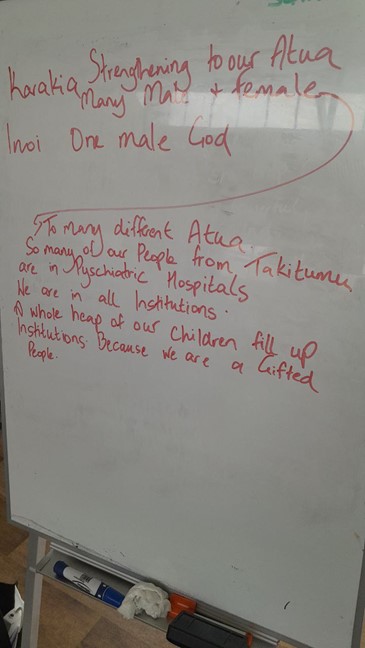 Karakia Strengthening to our Atua
Many Male + females
Inoi One male God
To many different Atua.
So many of our People from Takitumu
are in Pyschiatric Hospitals
We are in all Institutions.
A whole heap of our children fill up
Institutions. Because we are a Gifted
People.